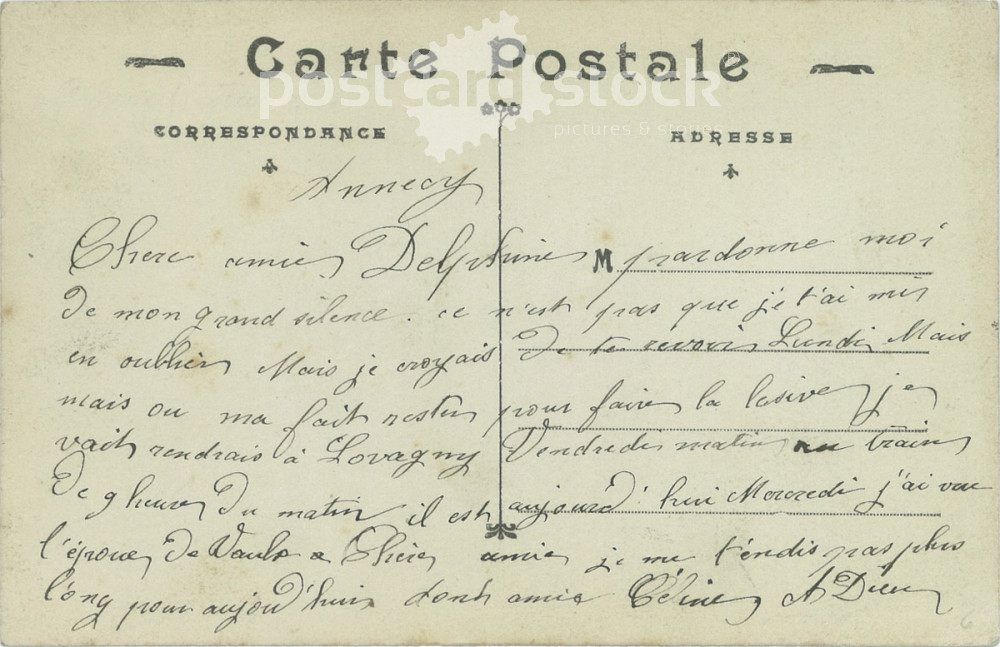 Carte Postale
postcard stock
pictures & stories
CORRESPONDANCE
ADRESSE
Annecy
Chere amie Delphine M pardonne moi
De mon grand silence. ce n'est pas que je t'ai mis
en oublier Mais je croyais De te revoir Lundi Mais
mais ou ma fait rester pour faire la lasive je
vait rendrais à Lovagny Vendredi matin au train
De 9 heures Du matin il est aujourd'hui Mercredi j'ai vue
l'épouse De Vaulx Chère amie je me t'endis pas plus
l'ong pour aujourd'hui amie A Dieu